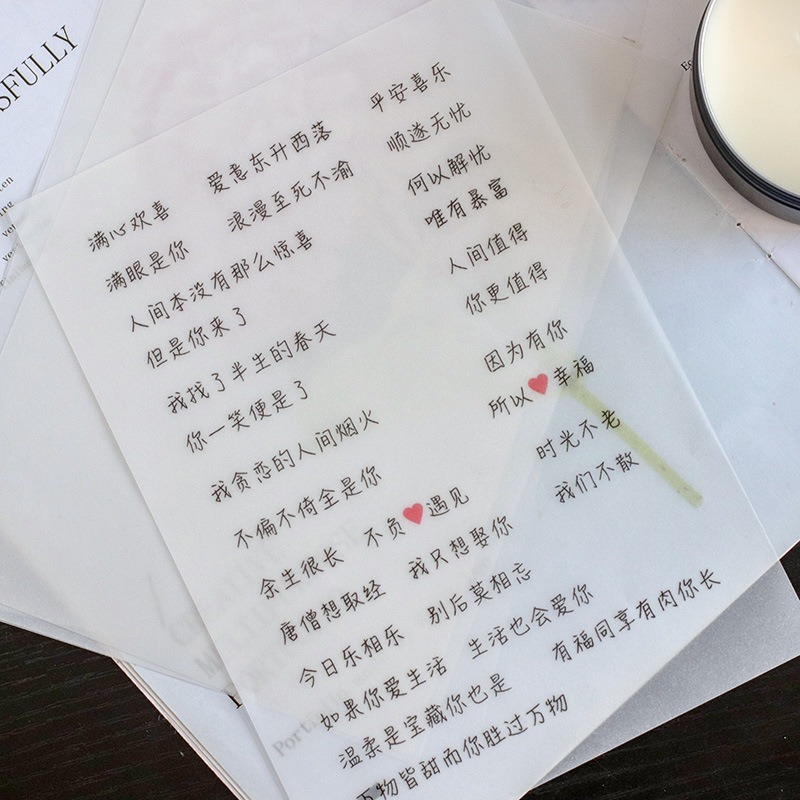 满心欢喜 爱意东升西落 平安喜乐
满眼是你 浪漫至死不渝 顺遂无忧
人间本没有那么惊喜 何以解忧
但是你来了 唯有暴富
我找了半生的春天 人间值得
你一笑便是了 你更值得
我贪恋的人间烟火 因为有你
不偏不倚全是你 所以❤幸福
余生很长 不负❤遇见 时光不老
唐僧想取经 我只想娶你 我们不散
今日乐相乐 别后莫相忘
如果你爱生活 生活也会爱你
温柔是宝藏你也是 有福同享有肉你长
万物皆甜而你胜过万物
SFULLY
ten